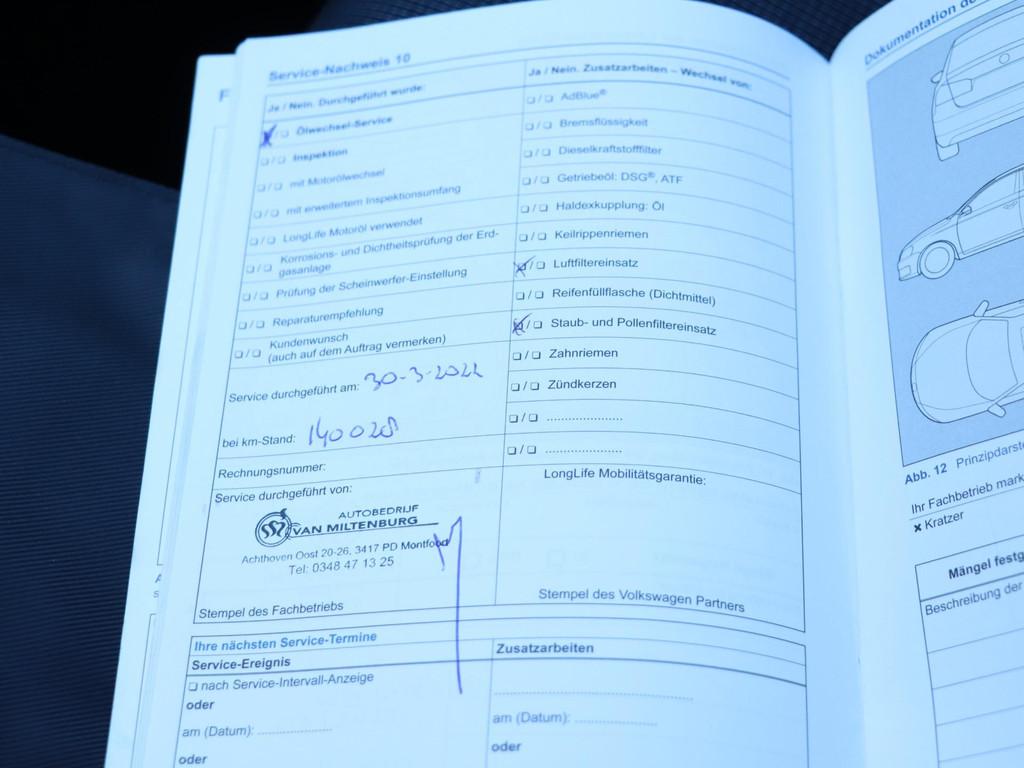 Service-Nachweis 10
Ja / Nein. Durchgeführt wurde:
Ölwechsel-Service
Inspektion
mit Motorölwechsel
mit erweitertem Inspektionsumfang
LongLife Motoröl verwendet
Korrosions- und Dichtheitsprüfung der Erd-
gasanlage
Prüfung der Scheinwerfer-Einstellung
Reparaturempfehlung
Kundenwunsch
(auch auf dem Auftrag vermerken)
Service durchgeführt am: 30-3-2022
bei km-Stand: 140028
Rechnungsnummer:
Service durchgeführt von:
AUTOBEDRIJF
VAN MILTENBURG
Achthoven Oost 20-26, 3417 PD Montfoort
Tel: 0348 47 13 25
Stempel des Fachbetriebs
Ja / Nein. Zusatzarbeiten – Wechsel von:
AdBlue®
Bremsflüssigkeit
Dieselkraftstofffilter
Getriebeöl: DSG®, ATF
Haldexkupplung: Öl
Keilrippenriemen
Luftfiltereinsatz
Reifenfüllflasche (Dichtmittel)
Staub- und Pollenfiltereinsatz
Zahnriemen
Zündkerzen
LongLife Mobilitätsgarantie:
Stempel des Volkswagen Partners
Ihre nächsten Service-Termine
Service-Ereignis
nach Service-Intervall-Anzeige
oder
am (Datum):
oder
Zusatzarbeiten
am (Datum):
oder
Dokumentation
Abb. 12 Prinzipdarst
Ihr Fachbetrieb mark
Kratzer
Mängel festg
Beschreibung der